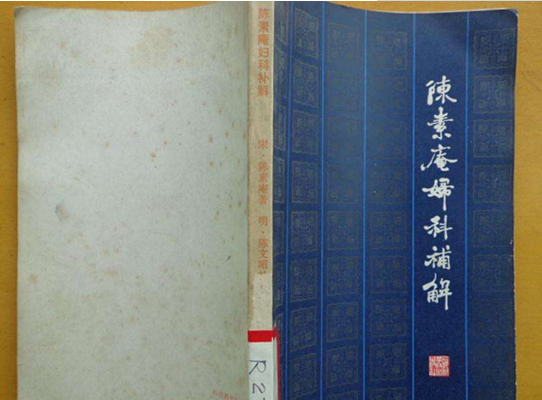 陳素庵婦科補解
陈素庵妇科补解
宋·陈素庵著 明·陈文昭
R2